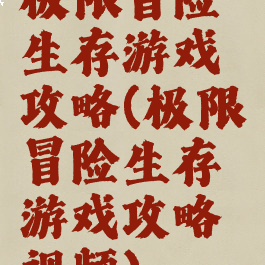 极限冒险
生存游戏
攻略(极限
冒险生存
游戏攻略
视频)